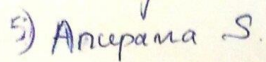 5) Anupama S.